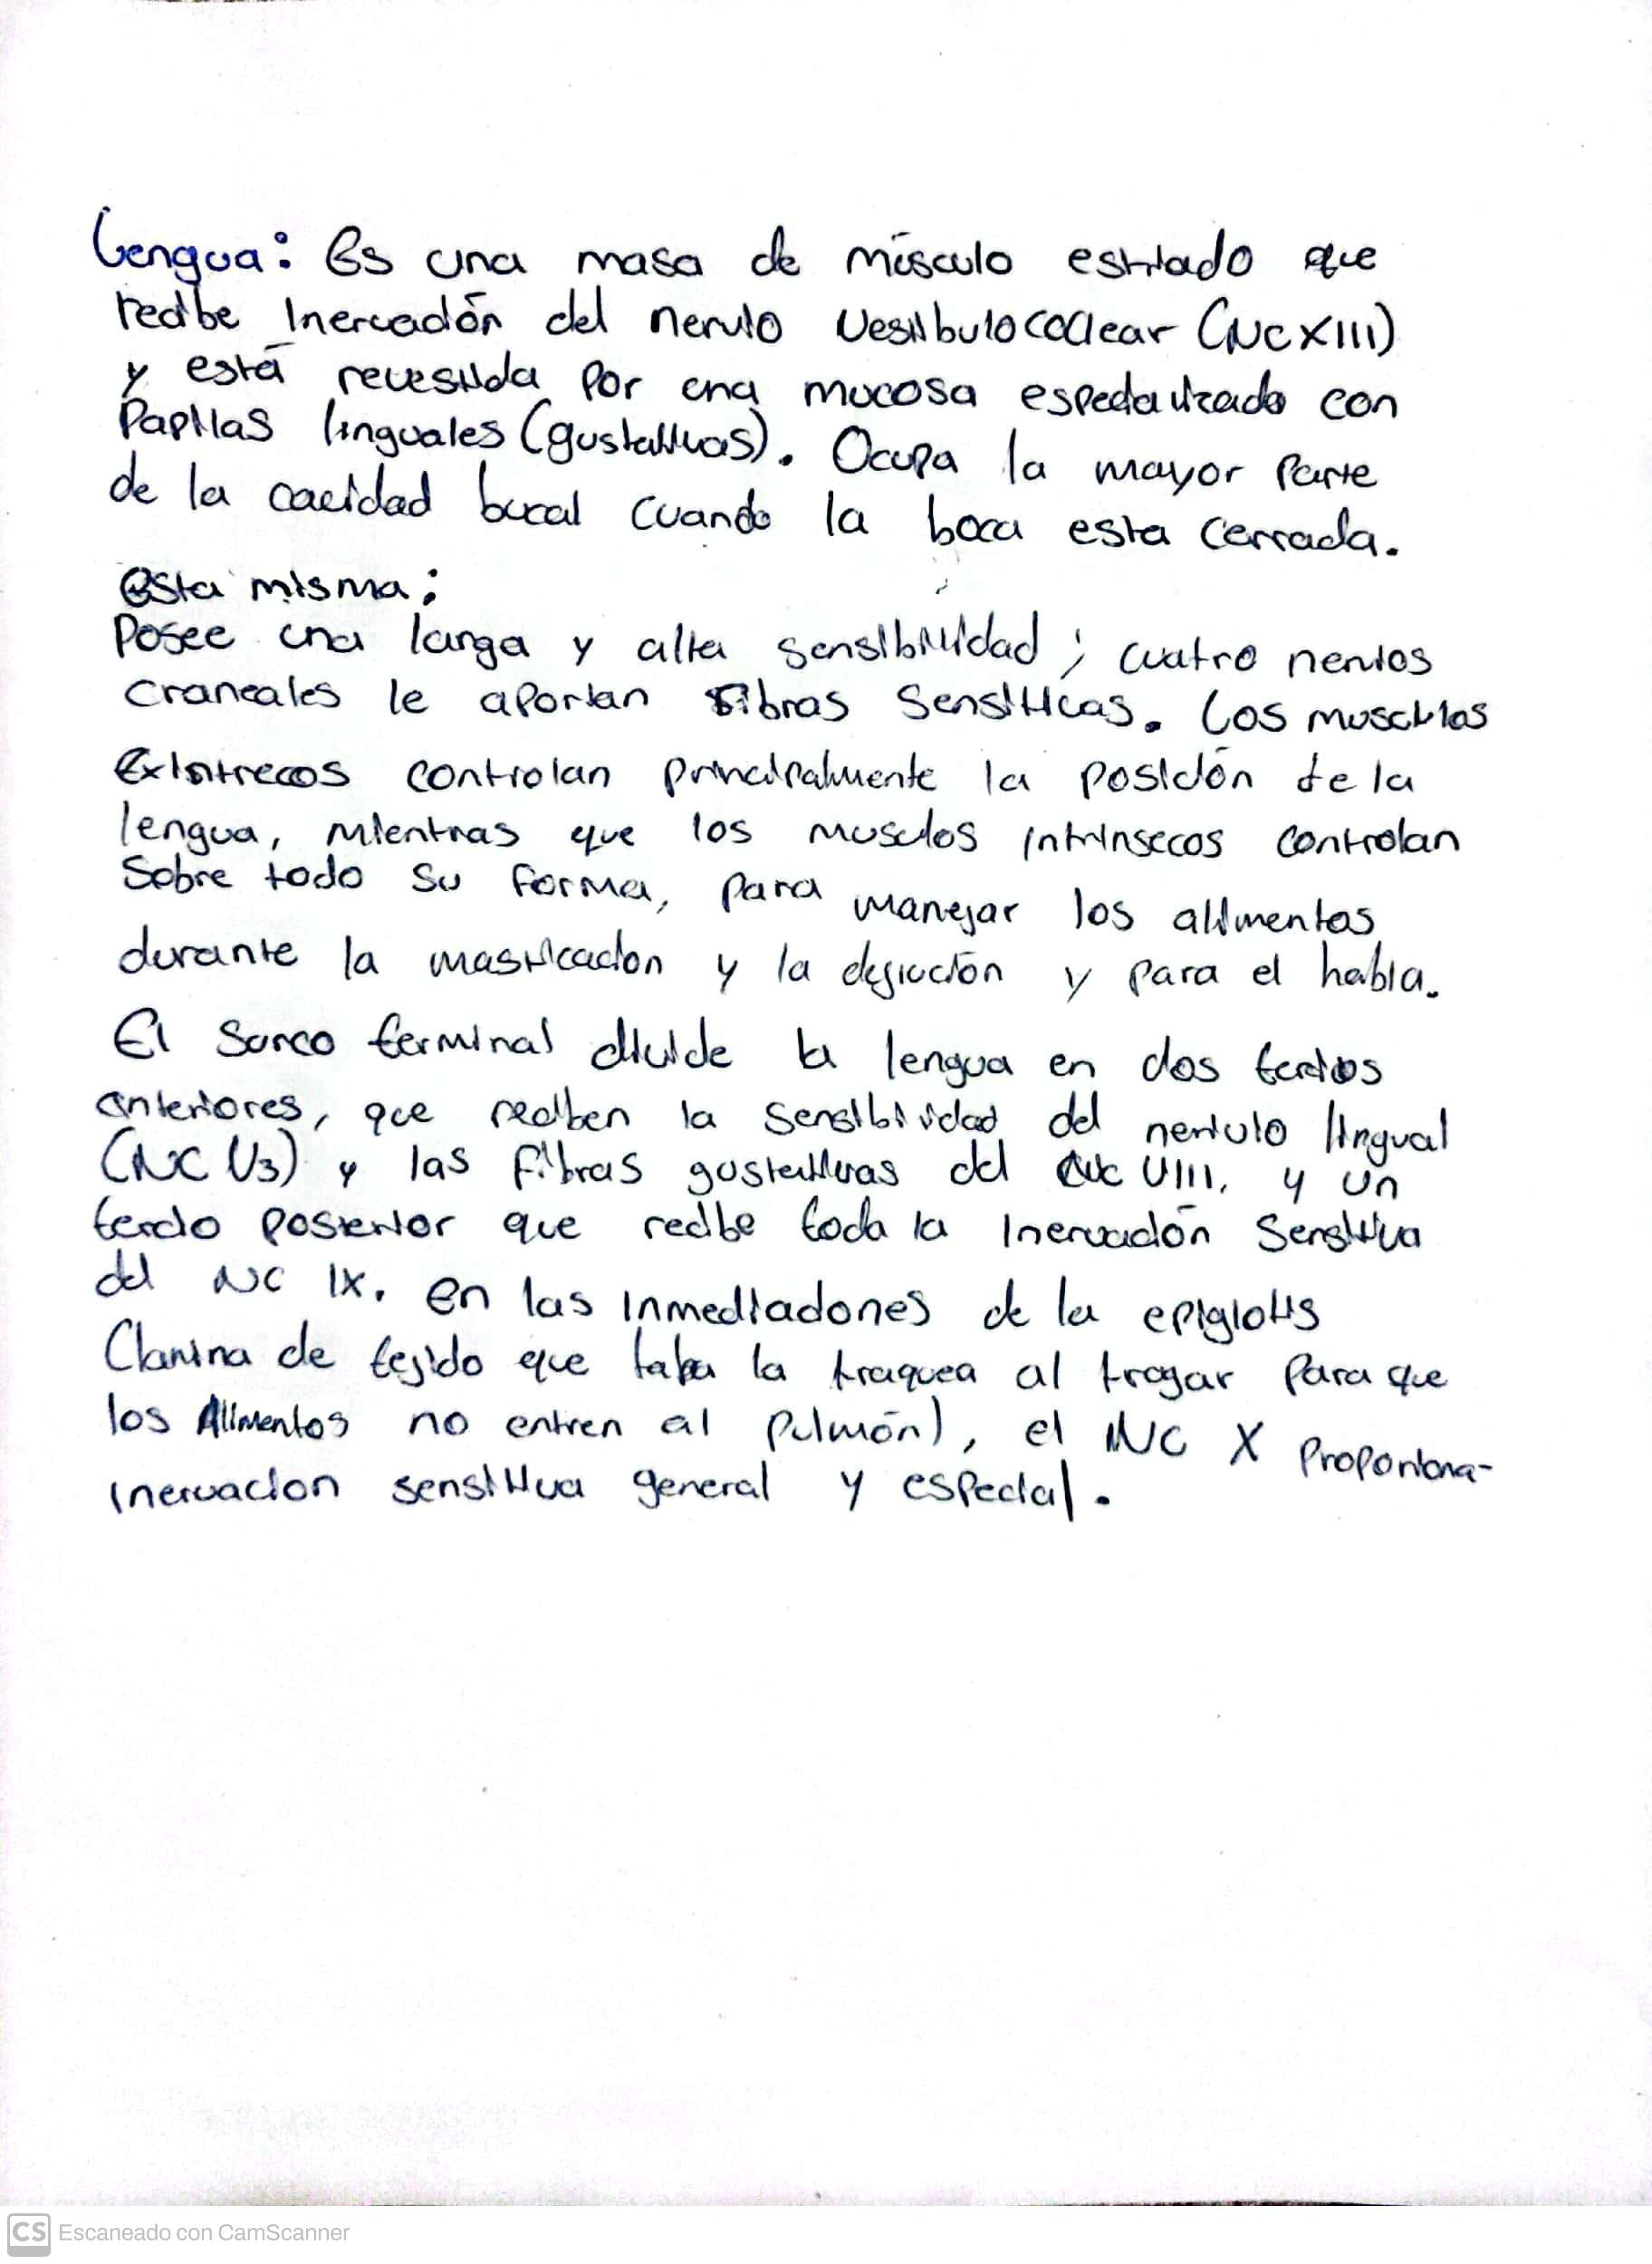 Lengua: Es una masa de músculo estriado que
recibe Inervación del nervio Vestibulococlear (NC XIII)
y está revestida por una mucosa especializado con
Papilas linguales (gustativas). Ocupa la mayor Parte
de la cavidad bucal cuando la boca esta cerrada.
Esta misma:
Posee una larga y alta sensibilidad; cuatro nervios
craneales le aportan Fibras Sensitivas. Los
controlan principalmente la posición de la
lengua, mientras que los musculos intrinsecos controlan
Sobre todo su forma, para manejar los alimentos
durante la masticacion y la y para el habla.
El Surco terminal divide la lengua en dos tercios
anteriores, que reciben la sensibilidad del lingual
(NC V3) y las fibras gustativas del NC VIII, y un
tercio posterior que recibe toda la Inervación Sensitiva
del NC IX. En las inmediaciones de la epiglotis
(lamina de tejido que tapa la traquea al tragar para que
los Alimentos no entren al pulmón), el NC X
inervacion sensitiva general y especial.
CS Escaneado con CamScanner